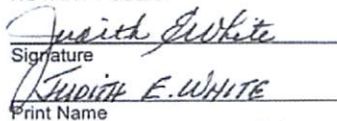 Judith E White
Signature
JUDITH E. WHITE
Print Name